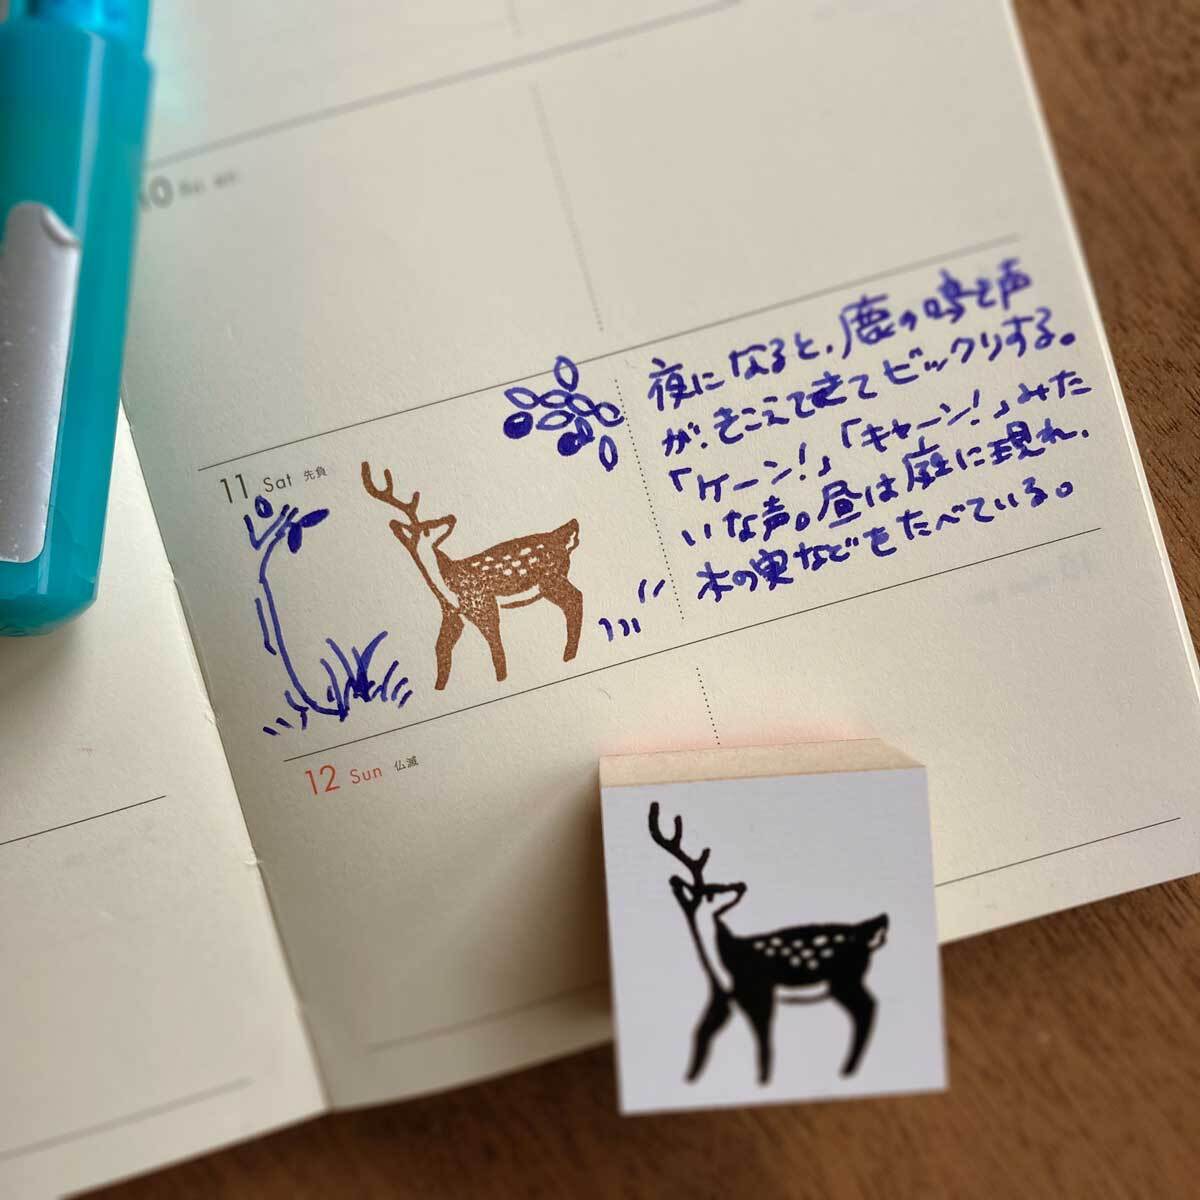 10
11 Sat 先負
夜になると、鹿の鳴き声
が、きこえてきてビックリする。
「ケーン!」「キャーン!」みた
いな声。昼は庭に現れ、
木の実などをたべている。
12 Sun 仏滅